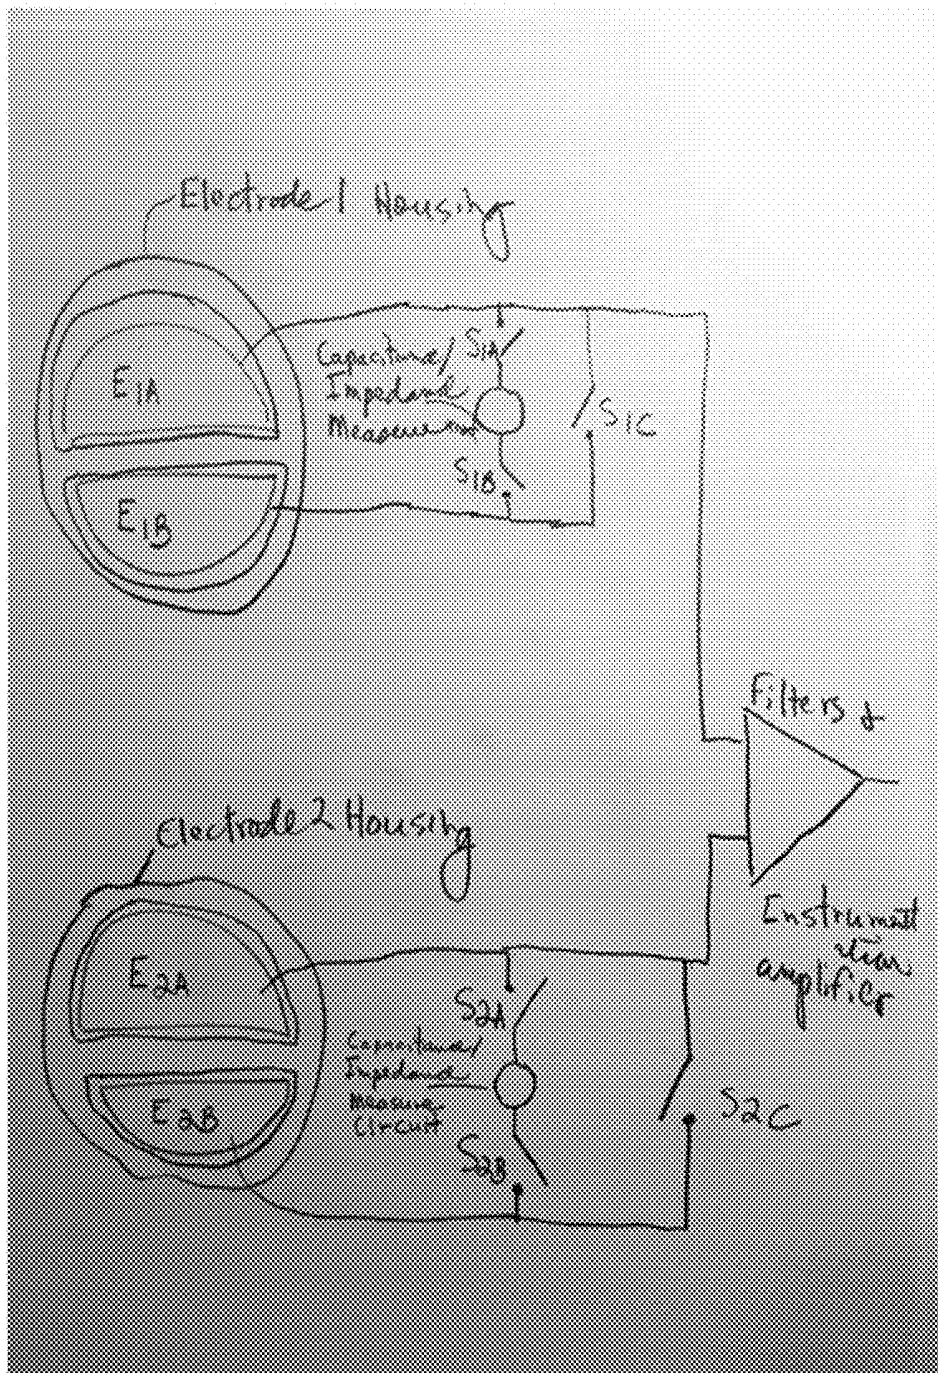 Electrode 1 Housing
E1A
Capacitance/
Impedance
Measurement
S1A
S1B
S1C
E1B
Filters &
Instrumenta
tion
amplifier
Electrode 2 Housing
E2A
S2A
Capacitance/
Impedance
Measure
Circuit
S2B
S2C
E2B